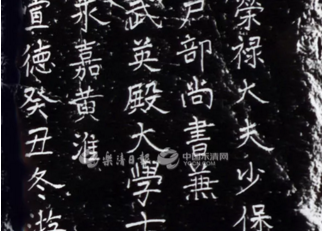 榮禄大夫少保
户部尚書蕪
武英殿大學士
永嘉黃淮
宣德癸丑冬
樂清日報
中国乐清网